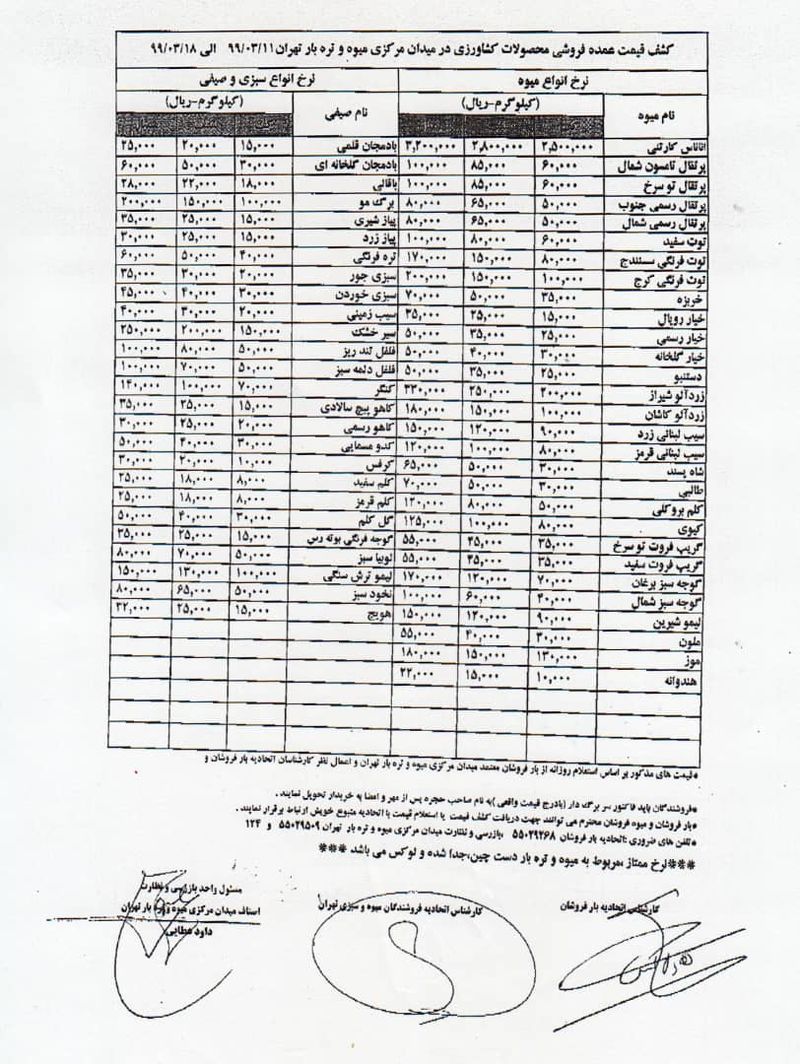 کشف قیمت عمده فروشی محصولات کشاورزی در میدان مرکزی میوه و تره بار تهران ۹۹/۰۳/۱۱ الی ۹۹/۰۳/۱۸
نرخ انواع میوه نرخ انواع سبزی و صیفی
نام میوه (کیلوگرم-ریال) نام صیفی (کیلوگرم-ریال)
اناناس کارتنی ۲,۵۰۰,۰۰۰ ۲,۸۰۰,۰۰۰ ۳,۲۰۰,۰۰۰ بادمجان قلمی ۱۵,۰۰۰ ۲۰,۰۰۰ ۲۵,۰۰۰
پرتقال تامسون شمال ۶۰,۰۰۰ ۸۵,۰۰۰ ۱۰۰,۰۰۰ بادمجان گلخانه ای ۳۰,۰۰۰ ۵۰,۰۰۰ ۶۰,۰۰۰
پرتقال تو سرخ ۶۰,۰۰۰ ۸۵,۰۰۰ ۱۰۰,۰۰۰ باقالی ۱۸,۰۰۰ ۲۲,۰۰۰ ۲۸,۰۰۰
پرتقال رسمی جنوب ۵۰,۰۰۰ ۶۵,۰۰۰ ۸۰,۰۰۰ برگ مو ۱۰۰,۰۰۰ ۱۵۰,۰۰۰ ۲۰۰,۰۰۰
پرتقال رسمی شمال ۵۰,۰۰۰ ۶۵,۰۰۰ ۸۰,۰۰۰ پیاز شیری ۱۵,۰۰۰ ۲۵,۰۰۰ ۳۵,۰۰۰
توت سفید ۶۰,۰۰۰ ۸۰,۰۰۰ ۱۰۰,۰۰۰ پیاز زرد ۱۵,۰۰۰ ۲۵,۰۰۰ ۳۰,۰۰۰
توت فرنگی سنندج ۸۰,۰۰۰ ۱۵۰,۰۰۰ ۱۷۰,۰۰۰ تره فرنگی ۴۰,۰۰۰ ۵۰,۰۰۰ ۶۰,۰۰۰
توت فرنگی کرج ۱۰۰,۰۰۰ ۱۵۰,۰۰۰ ۲۰۰,۰۰۰ سبزی جور ۲۰,۰۰۰ ۳۰,۰۰۰ ۳۵,۰۰۰
خربزه ۳۵,۰۰۰ ۵۰,۰۰۰ ۷۰,۰۰۰ سبزی خوردن ۳۰,۰۰۰ ۴۰,۰۰۰ ۴۵,۰۰۰
خیار رویال ۱۵,۰۰۰ ۲۵,۰۰۰ ۳۵,۰۰۰ سیب زمینی ۲۰,۰۰۰ ۳۰,۰۰۰ ۴۰,۰۰۰
خیار رسمی ۲۵,۰۰۰ ۳۵,۰۰۰ ۵۰,۰۰۰ سیر خشک ۱۵۰,۰۰۰ ۲۰۰,۰۰۰ ۲۵۰,۰۰۰
خیار گلخانه ۳۰,۰۰۰ ۴۰,۰۰۰ ۵۰,۰۰۰ فلفل تند ریز ۵۰,۰۰۰ ۸۰,۰۰۰ ۱۰۰,۰۰۰
دستنبو ۲۵,۰۰۰ ۳۵,۰۰۰ ۵۰,۰۰۰ فلفل دلمه سبز ۵۰,۰۰۰ ۷۰,۰۰۰ ۱۰۰,۰۰۰
زردآلو شیراز ۲۰۰,۰۰۰ ۲۵۰,۰۰۰ ۳۳۰,۰۰۰ کنگر ۷۰,۰۰۰ ۱۰۰,۰۰۰ ۱۴۰,۰۰۰
زردآلو کاشان ۱۰۰,۰۰۰ ۱۵۰,۰۰۰ ۱۸۰,۰۰۰ کاهو پیچ سالادی ۱۵,۰۰۰ ۲۵,۰۰۰ ۳۵,۰۰۰
سیب لبنانی زرد ۹۰,۰۰۰ ۱۲۰,۰۰۰ ۱۵۰,۰۰۰ کاهو رسمی ۲۰,۰۰۰ ۲۵,۰۰۰ ۳۰,۰۰۰
سیب لبنانی قرمز ۸۰,۰۰۰ ۱۰۰,۰۰۰ ۱۲۰,۰۰۰ کدو مسمایی ۳۰,۰۰۰ ۴۰,۰۰۰ ۵۰,۰۰۰
شاه پسند ۳۰,۰۰۰ ۵۰,۰۰۰ ۶۵,۰۰۰ کرفس ۱۰,۰۰۰ ۲۰,۰۰۰ ۳۰,۰۰۰
طالبی ۳۰,۰۰۰ ۵۰,۰۰۰ ۷۰,۰۰۰ کلم سفید ۸,۰۰۰ ۱۸,۰۰۰ ۲۵,۰۰۰
کلم بروکلی ۵۰,۰۰۰ ۸۰,۰۰۰ ۱۲۰,۰۰۰ کلم قرمز ۸,۰۰۰ ۱۸,۰۰۰ ۲۵,۰۰۰
کیوی ۸۰,۰۰۰ ۱۰۰,۰۰۰ ۱۲۵,۰۰۰ گل کلم ۳۰,۰۰۰ ۴۰,۰۰۰ ۵۰,۰۰۰
گریپ فروت تو سرخ ۳۵,۰۰۰ ۴۵,۰۰۰ ۵۵,۰۰۰ گوجه فرنگی بوته رس ۱۵,۰۰۰ ۲۵,۰۰۰ ۳۵,۰۰۰
گریپ فروت سفید ۳۵,۰۰۰ ۴۵,۰۰۰ ۵۵,۰۰۰ لوبیا سبز ۵۰,۰۰۰ ۷۰,۰۰۰ ۸۰,۰۰۰
گوجه سبز برغان ۷۰,۰۰۰ ۱۲۰,۰۰۰ ۱۷۰,۰۰۰ لیمو ترش سنگی ۱۰۰,۰۰۰ ۱۳۰,۰۰۰ ۱۵۰,۰۰۰
گوجه سبز شمال ۴۰,۰۰۰ ۶۰,۰۰۰ ۱۰۰,۰۰۰ نخود سبز ۵۰,۰۰۰ ۶۵,۰۰۰ ۸۰,۰۰۰
لیمو شیرین ۹۰,۰۰۰ ۱۲۰,۰۰۰ ۱۵۰,۰۰۰ هویج ۱۵,۰۰۰ ۲۵,۰۰۰ ۳۲,۰۰۰
ملون ۳۰,۰۰۰ ۴۰,۰۰۰ ۵۵,۰۰۰
موز ۱۳۰,۰۰۰ ۱۵۰,۰۰۰ ۱۸۰,۰۰۰
هندوانه ۱۰,۰۰۰ ۱۵,۰۰۰ ۲۲,۰۰۰
*قیمت های مذکور بر اساس استعلام روزانه از بار فروشان معتمد میدان مرکزی میوه و تره بار تهران و اعمال نظر کارشناسان اتحادیه بار فروشان و
*فروشندگان باید فاکتور سر برگ دار (بادرج قیمت واقعی) به نام صاحب حجره پس از مهر و امضا به خریدار تحویل نمایند .
*بار فروشان و میوه فروشان محترم می توانند جهت دریافت کشف قیمت یا استعلام قیمت با اتحادیه متبوع خویش ارتباط برقرار نمایند .
*تلفن های ضروری :اتحادیه بار فروشان ۵۵۰۲۹۲۶۸ بازرسی و نظارت میدان مرکزی میوه و تره بار تهران ۵۵۰۲۹۵۰۹ و ۱۲۴
***نرخ ممتاز ،مربوط به میوه و تره بار دست چین،جدا شده و لوکس می باشد ***
کارشناس اتحادیه بار فروشان
کارشناس اتحادیه فروشندگان میوه و سبزی تهران
مسئول واحد بازرسی و نظارت
اصناف میدان مرکزی میوه و تره بار تهران
داود عطایی